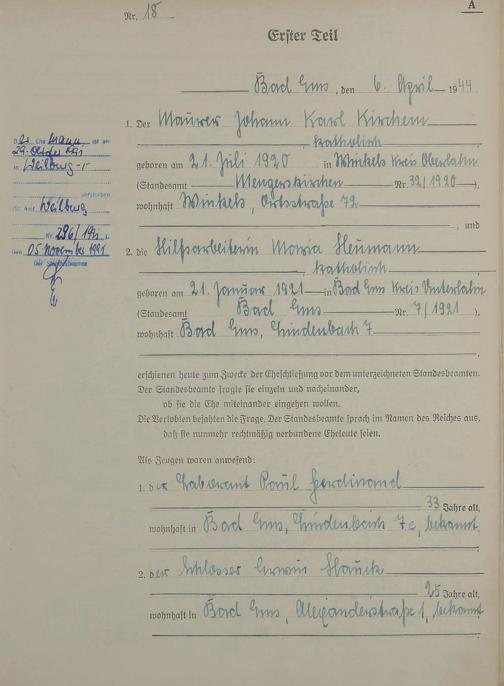 Nr. 18
A
Erster Teil
Bad Ems, den 6. April 1944
1. Der Maurer Johann Karl Kirchem
, katholisch
geboren am 21. Juli 1920 in Winkels Kreis Oberlahn
(Standesamt Mengerskirchen Nr. 32/1920),
wohnhaft Winkels, Ortsstraße 72
, und
2. die Hilfsarbeiterin Maria Heumann
, katholisch
geboren am 21. Januar 1921 in Bad Ems Kreis Unterlahn
(Standesamt Bad Ems Nr. 7/1921),
wohnhaft Bad Ems, Lindenbach 7
erschienen heute zum Zwecke der Eheschließung vor dem unterzeichneten Standesbeamten.
Der Standesbeamte fragte sie einzeln und nacheinander,
ob sie die Ehe miteinander eingehen wollen.
Die Verlobten bejahten die Frage. Der Standesbeamte sprach im Namen des Reiches aus,
daß sie nunmehr rechtmäßig verbundene Eheleute seien.
Als Zeugen waren anwesend:
1. der Laborant Paul Ferdinand
33 Jahre alt,
wohnhaft in Bad Ems, Lindenbach 7c, bekannt
2. der Schlosser Erwin Hauck
25 Jahre alt,
wohnhaft in Bad Ems, Alexanderstraße 1, bekannt
Ehemann ist am
29. Oktober
in Weilburg
verstorben
St. Amt Weilburg
Nr. 296/
den 05. November 1991
Der Standesbeamte